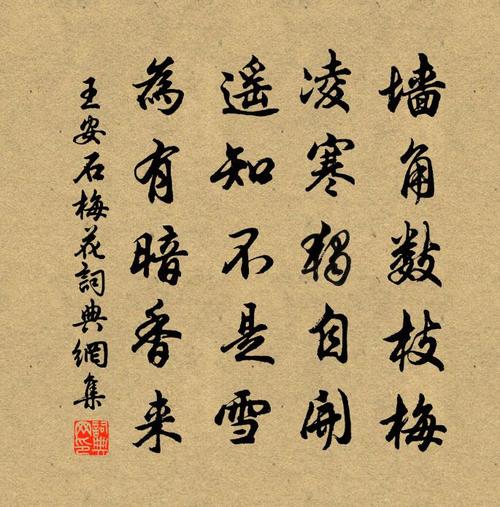 墙角数枝梅
凌寒独自开
遥知不是雪
为有暗香来
王安石梅花词典网集
词典网印